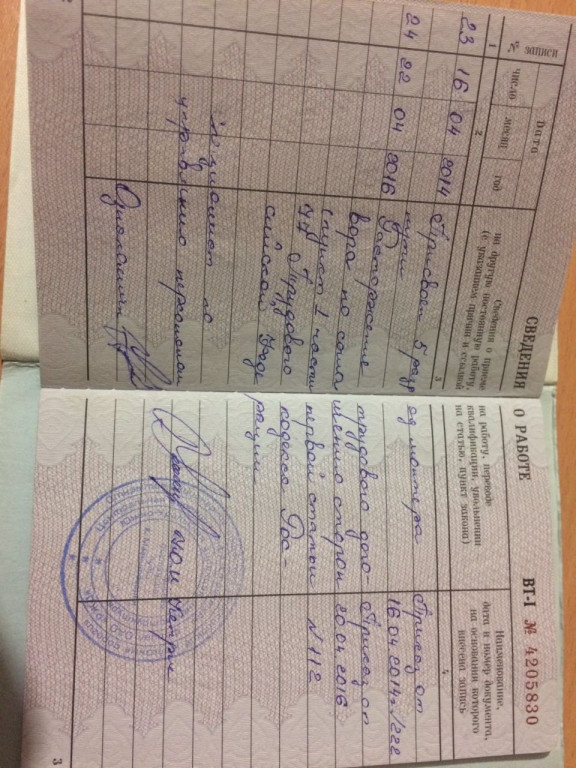 СВЕДЕНИЯ О РАБОТЕ ВТ-I № 4205830
№ записи
Дата
число
месяц
год
Сведения о приеме на работу, переводе
на другую постоянную работу, квалификации, увольнении
(с указанием причин и ссылкой на статью, пункт закона)
Наименование,
дата и номер документа,
на основании которого
внесена запись
1 2 3 4
23 16 04 2014 Присвоен 5 разряд монтера Приказ от
пути 16.04.2014г №222
24 22 04 2016 Расторжение трудового дого- Приказ от
вора по соглашению сторон 20.04.2016
пункт 1 части первой статьи №112
77 Трудового кодекса Рос-
сийской Федерации
Специалист по
управлению персоналом
3